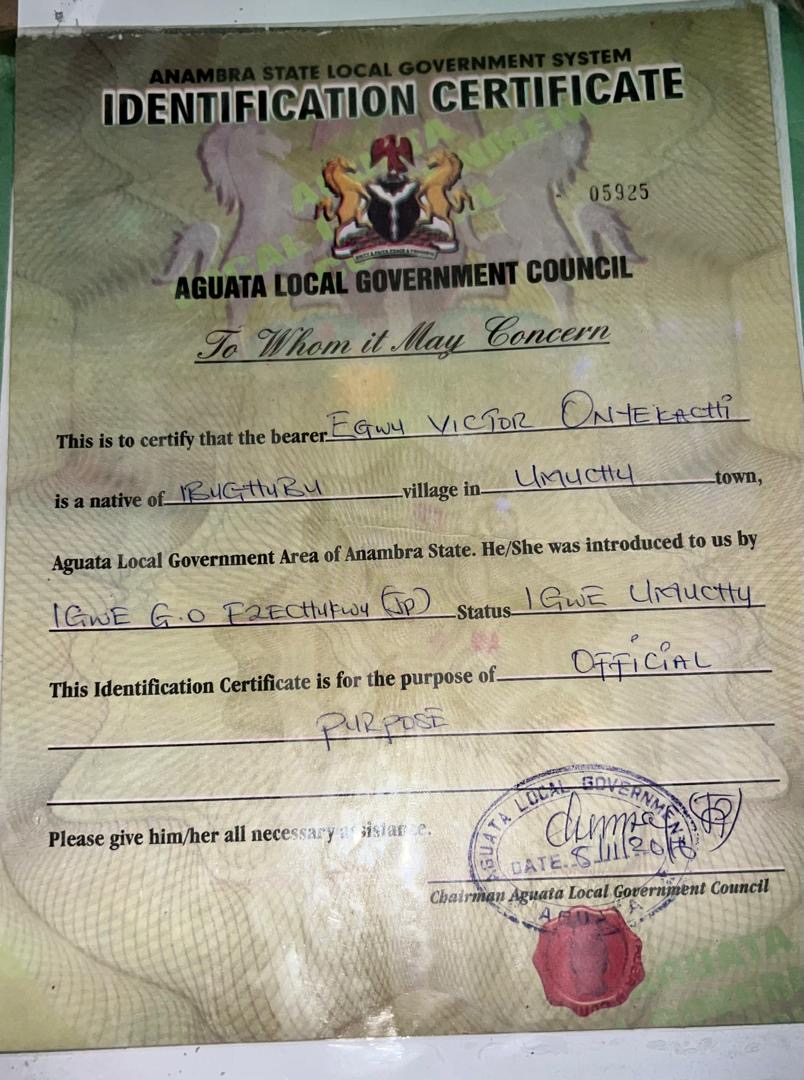 ANAMBRA STATE LOCAL GOVERNMENT SYSTEM
IDENTIFICATION CERTIFICATE
05925
AGUATA LOCAL GOVERNMENT COUNCIL
To Whom it May Concern
This is to certify that the bearer EGWU VICTOR ONYEKACHI
is a native of IBUGHUBU village in UMUCHU town,
Aguata Local Government Area of Anambra State. He/She was introduced to us by
IGWE G.O EZECHUKWU (JP) Status IGWE UMUCHU
This Identification Certificate is for the purpose of OFFICIAL
PURPOSE
Please give him/her all necessary assistance.
AGUATA LOCAL GOVERNMENT
(JP)
DATE
AGUATA
Chairman Aguata Local Government Council